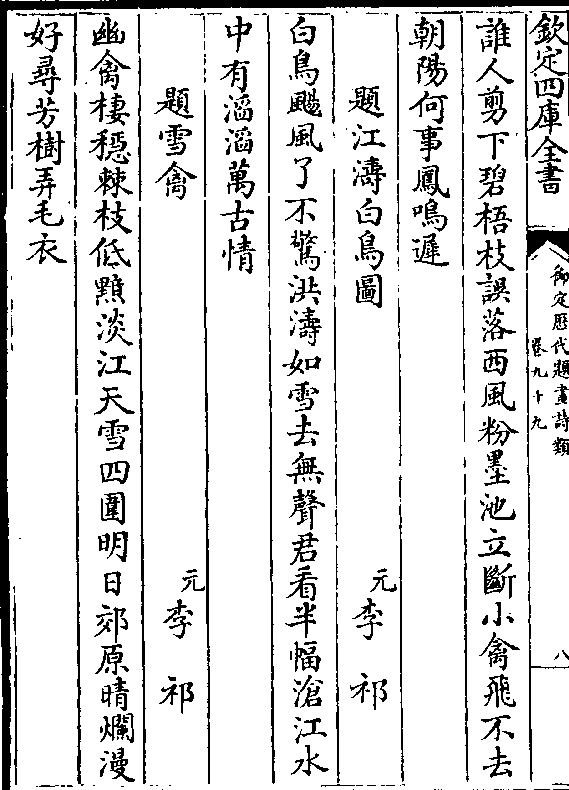 欽定四庫全書
御定歷代題畫詩類
卷九十九
八
誰人剪下碧梧枝誤落西風粉墨池立斷小禽飛不去
朝陽何事鳳鳴遲
題江濤白鳥圖 元李祁
白鳥颺風了不驚洪濤如雪去無聲君看半幅滄江水
中有滔滔萬古情
題雪禽 元李祁
幽禽棲穏棘枝低黯淡江天雪四圍明日郊原晴爛漫
好尋芳樹弄毛衣